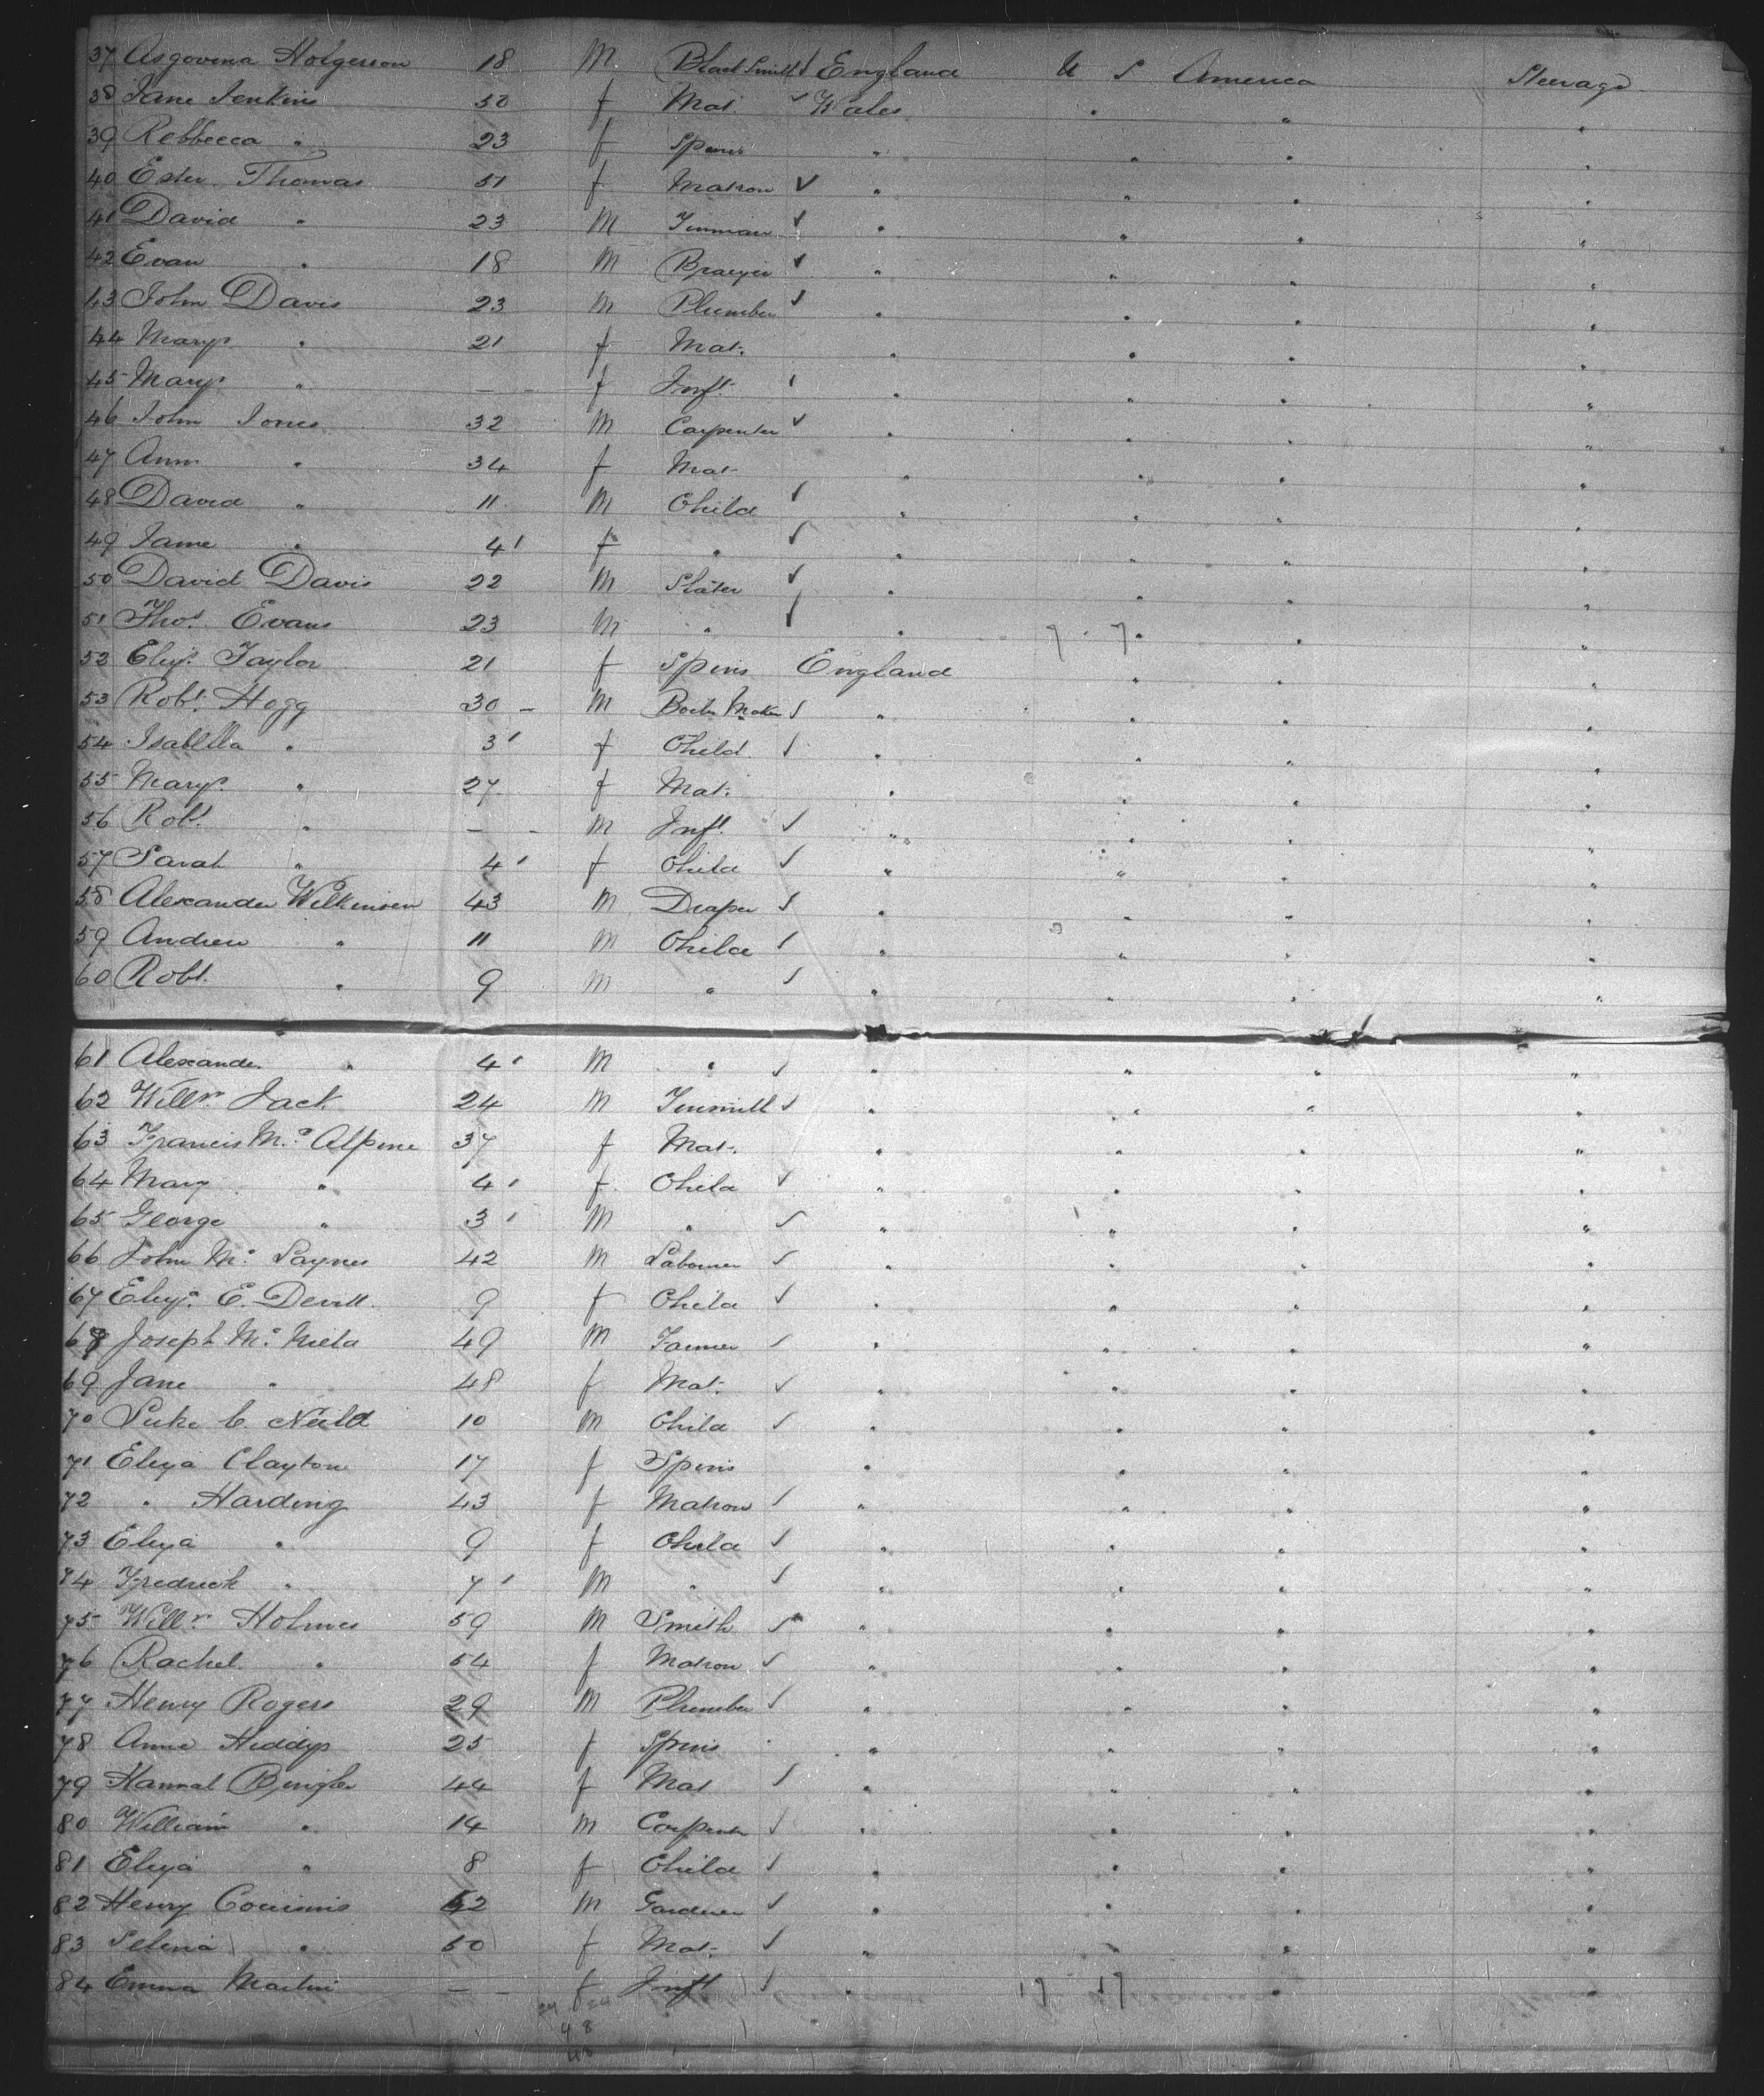 37 Asgovena Holgerson 18 M Blacksmith England U S America Steerage
38 Jane Jenkins 50 f Mat Wales " " "
39 Rebbecca " 23 f Spins " " " "
40 Ester Thomas 51 f Matron " " " "
41 David " 23 M Tinman " " " "
42 Evan " 18 M " " " "
43 John Davis 23 M Plumber " " " "
44 Mary " 21 f Mat. " " " "
45 Mary " — - f Inft. " " " "
46 John Jones 32 M Carpenter " " " "
47 Ann " 34 f Mat " " " "
48 David " 11 M Child " " " "
49 Jame " 4 f " " " " "
50 David Davis 22 M Slater " " " "
51 Thos. Evans 23 M " " " " "
52 Elizr. Taylor 21 f Spins England " " "
53 Robt. Hogg 30 - M Boiler Maker " " " "
54 Isabella " 3 f Child " " " "
55 Mary " 27 f Mat. " " " "
56 Robt. " — - M Inft. " " " "
57 Sarah " 4 f Child " " " "
58 Alexander Wilkinson 43 M Draper " " " "
59 Andrew " 11 M Child " " " "
60 Robt. " 9 M " " " " "
61 Alexander " 4 M " " " " "
62 Willm Jack 24 M Tinsmith " " " "
63 Francis Mc. Alpine 37 f Mat. " " " "
64 Mary " 4 f Child " " " "
65 George " 3 M " " " " "
66 John Mc. 42 M Laborer " " " "
67 Eliza. E. Devitt 9 f Child " " " "
68 Joseph Mc. Nield 49 M Farmer " " " "
69 Jane " 48 f Mat. " " " "
70 Luke C. Neild 10 M Child " " " "
71 Eliza Clayton 17 f Spins " " " "
72 " Harding 43 f Matron " " " "
73 Eliza " 9 f Child " " " "
74 Fredrick " 7 M " " " " "
75 Willm Holmes 59 M Smith " " " "
76 Rachel " 54 f Matron " " " "
77 Henry Rogers 29 M Plumber " " " "
78 Anne 25 f Spins " " " "
79 Hannah 44 f Mat " " " "
80 William " 14 M Carpenter " " " "
81 Eliza " 8 f Child " " " "
82 Henry 52 M Gardener " " " "
83 Selena " 50 f Mat. " " " "
84 Emma Martin — - f Inft " " "
24 24
48
48